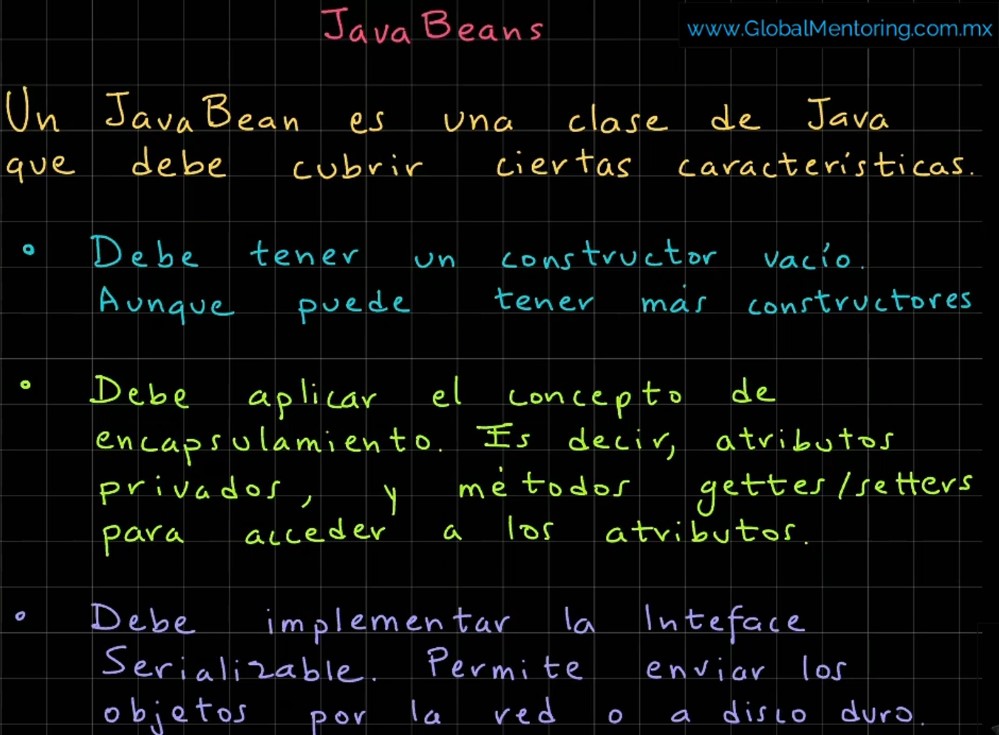 JavaBeans
www.GlobalMentoring.com.mx
Un JavaBean es una clase de Java
que debe cubrir ciertas características.
• Debe tener un constructor vacío.
Aunque puede tener más constructores
• Debe aplicar el concepto de
encapsulamiento. Es decir, atributos
privados, y métodos gettes/setters
para acceder a los atributos.
• Debe implementar la Inteface
Serializable. Permite enviar los
objetos por la red o a disco duro.